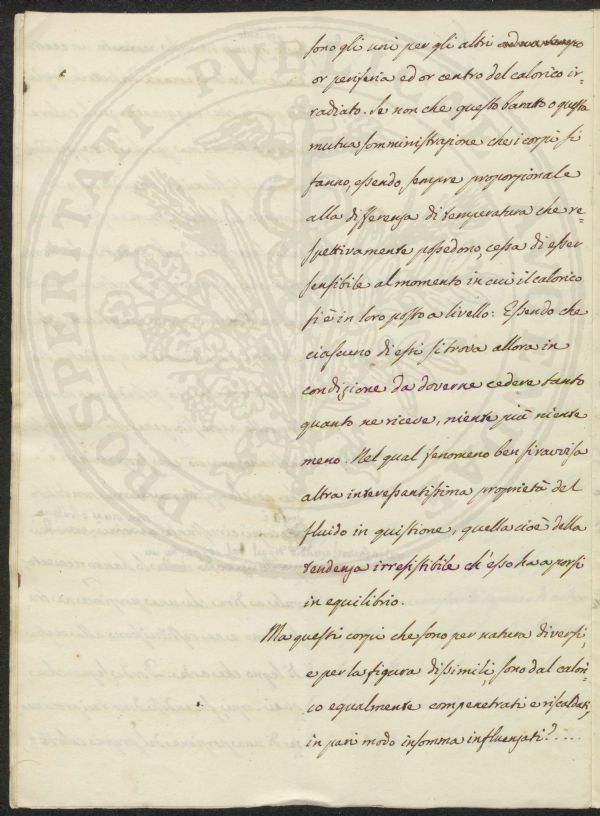 sono gli uni per gli altri
or periferia ed or centro del calorico ir-
radiato. Se non che questo baratto o questa
mutua somministrazione che i corpi si
fanno, essendo sempre proporzionale
alla differenza di temperatura che re-
spettivamente possedono, cessa di esser
sensibile al momento in cui il calorico
si è in loro posto a livello: Essendo che
ciascuno di essi si trova allora in
condizione da doverne cedere tanto
quanto ne riceve, niente più niente
meno. Nel qual fenomeno ben si ravvisa
altra interessantissima proprietà del
fluido in quistione, quella cioè della
tendenza irresistibile ch'esso ha a porsi
in equilibrio.
Ma questi corpi che sono per natura diversi,
e per la figura dissimili, sono dal calori-
co equalmente compenetrati e riscaldati,
in pari modo insomma influenzati?.....
PROSPERITATI PUBLICAE